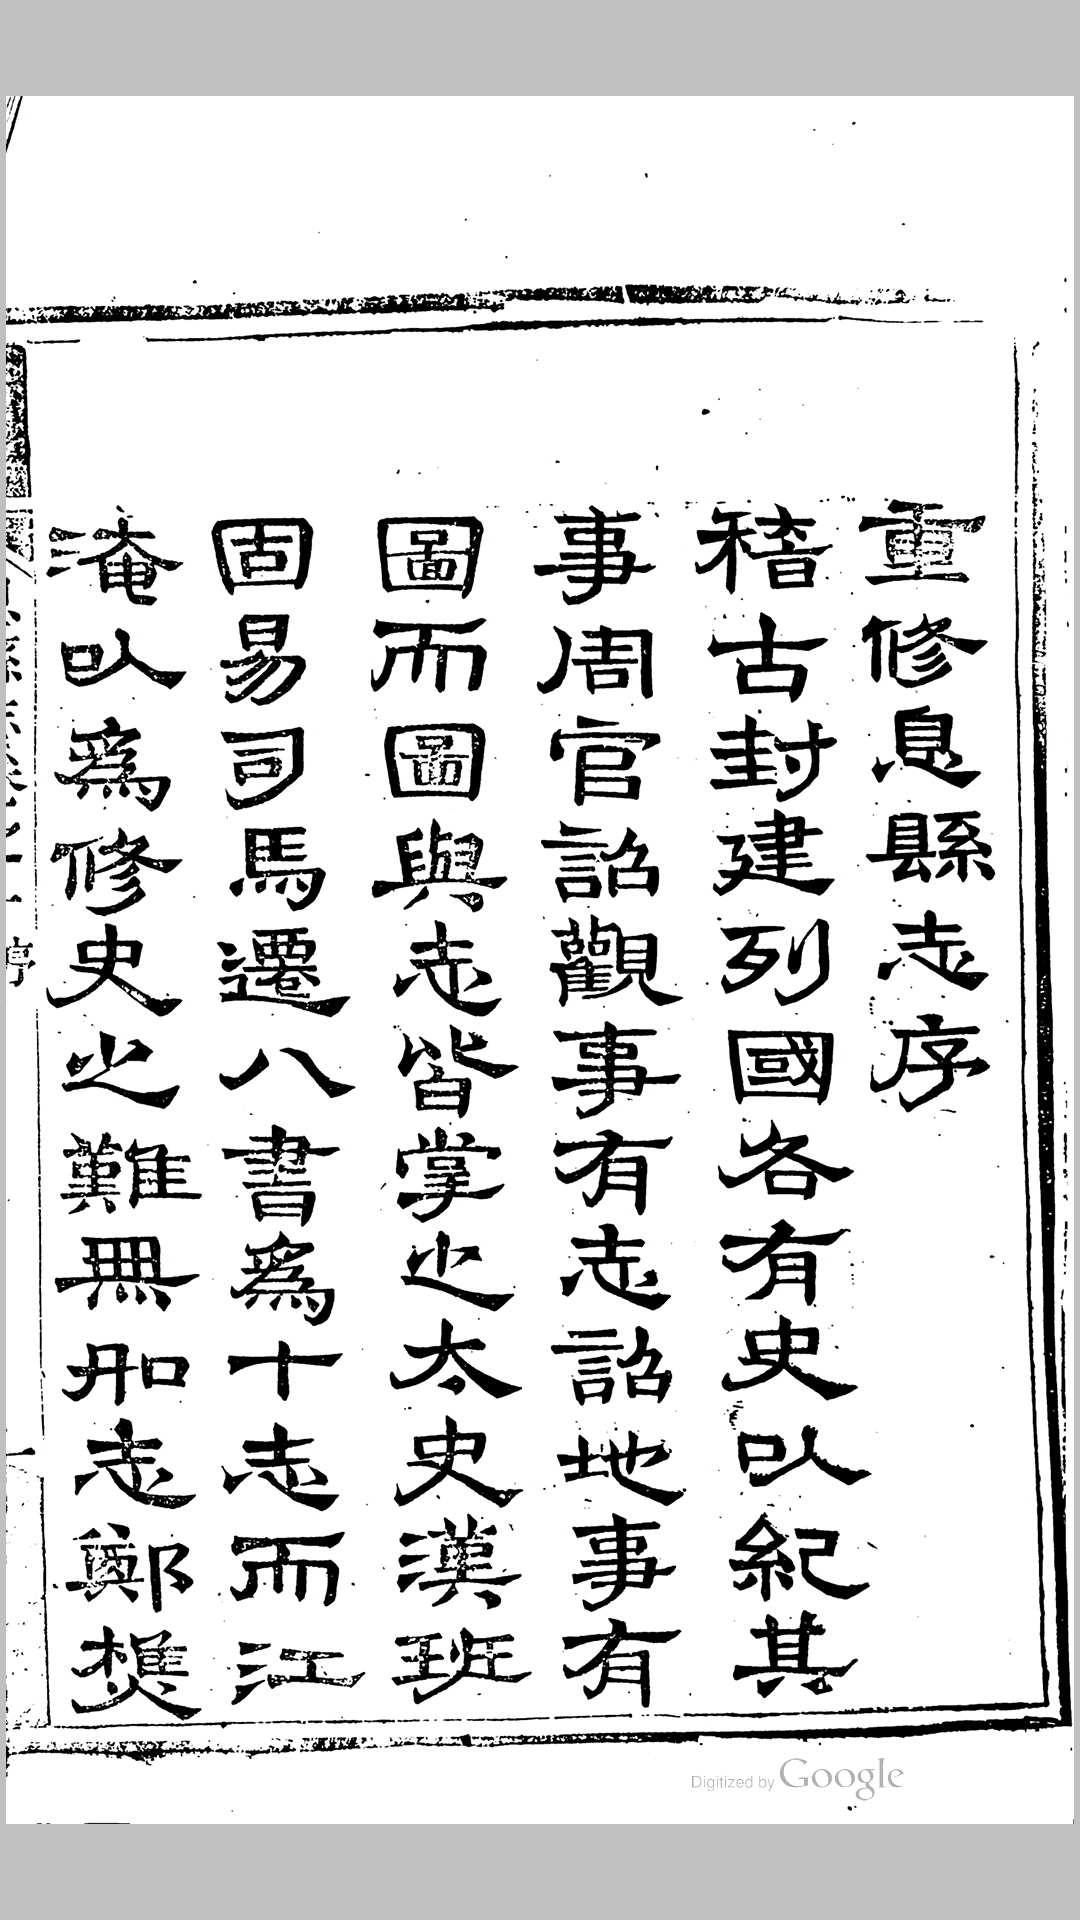 重修息縣志序
稽古封建列國各有史以紀其
事周官詔觀事有志詔地事有
圖而圖與志皆掌之太史漢班
固易司馬遷八書為十志而江
淹以為修史之難無出志鄭樵
Digitized by Google